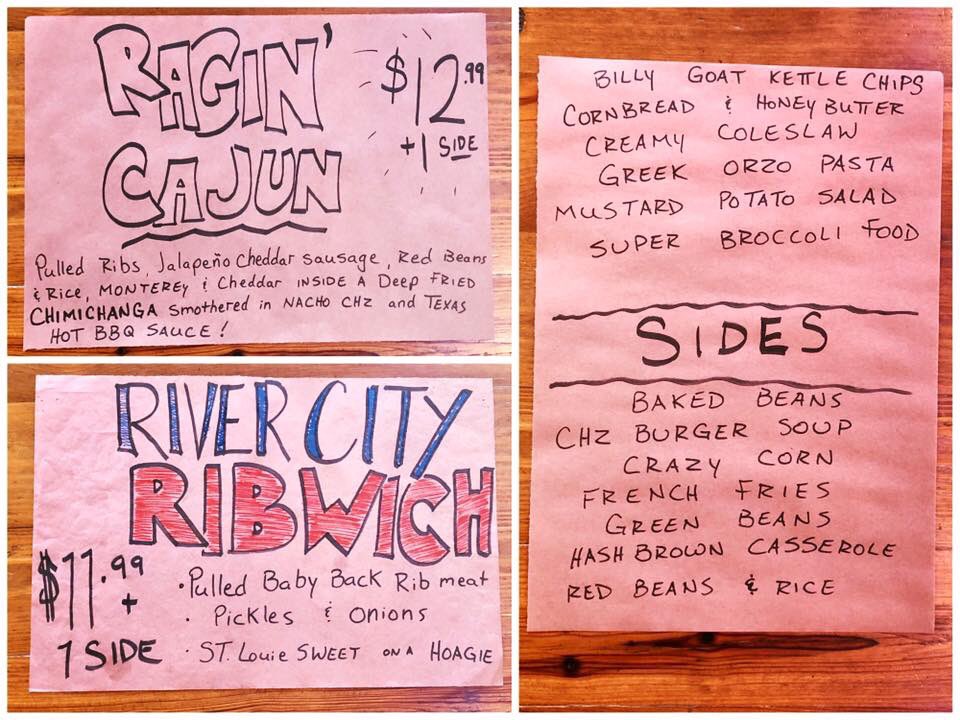 RAGIN'
CAJUN
$12.99
+1 SIDE
Pulled Ribs, Jalapeño Cheddar Sausage, Red Beans
& Rice, MONTEREY & Cheddar INSIDE A Deep FRIED
CHIMICHANGA Smothered in NACHO CHZ and TEXAS
HOT BBQ SAUCE!
RIVER CITY
RIBWICH
$11.99
+
1 SIDE
• Pulled Baby Back Rib meat
• Pickles & Onions
• ST. Louie SWEET ON A HOAGIE
BILLY GOAT KETTLE CHIPS
CORNBREAD & HONEY BUTTER
CREAMY COLESLAW
GREEK ORZO PASTA
MUSTARD POTATO SALAD
SUPER BROCCOLI FOOD
SIDES
BAKED BEANS
CHZ BURGER SOUP
CRAZY CORN
FRENCH FRIES
GREEN BEANS
HASH BROWN CASSEROLE
RED BEANS & RICE